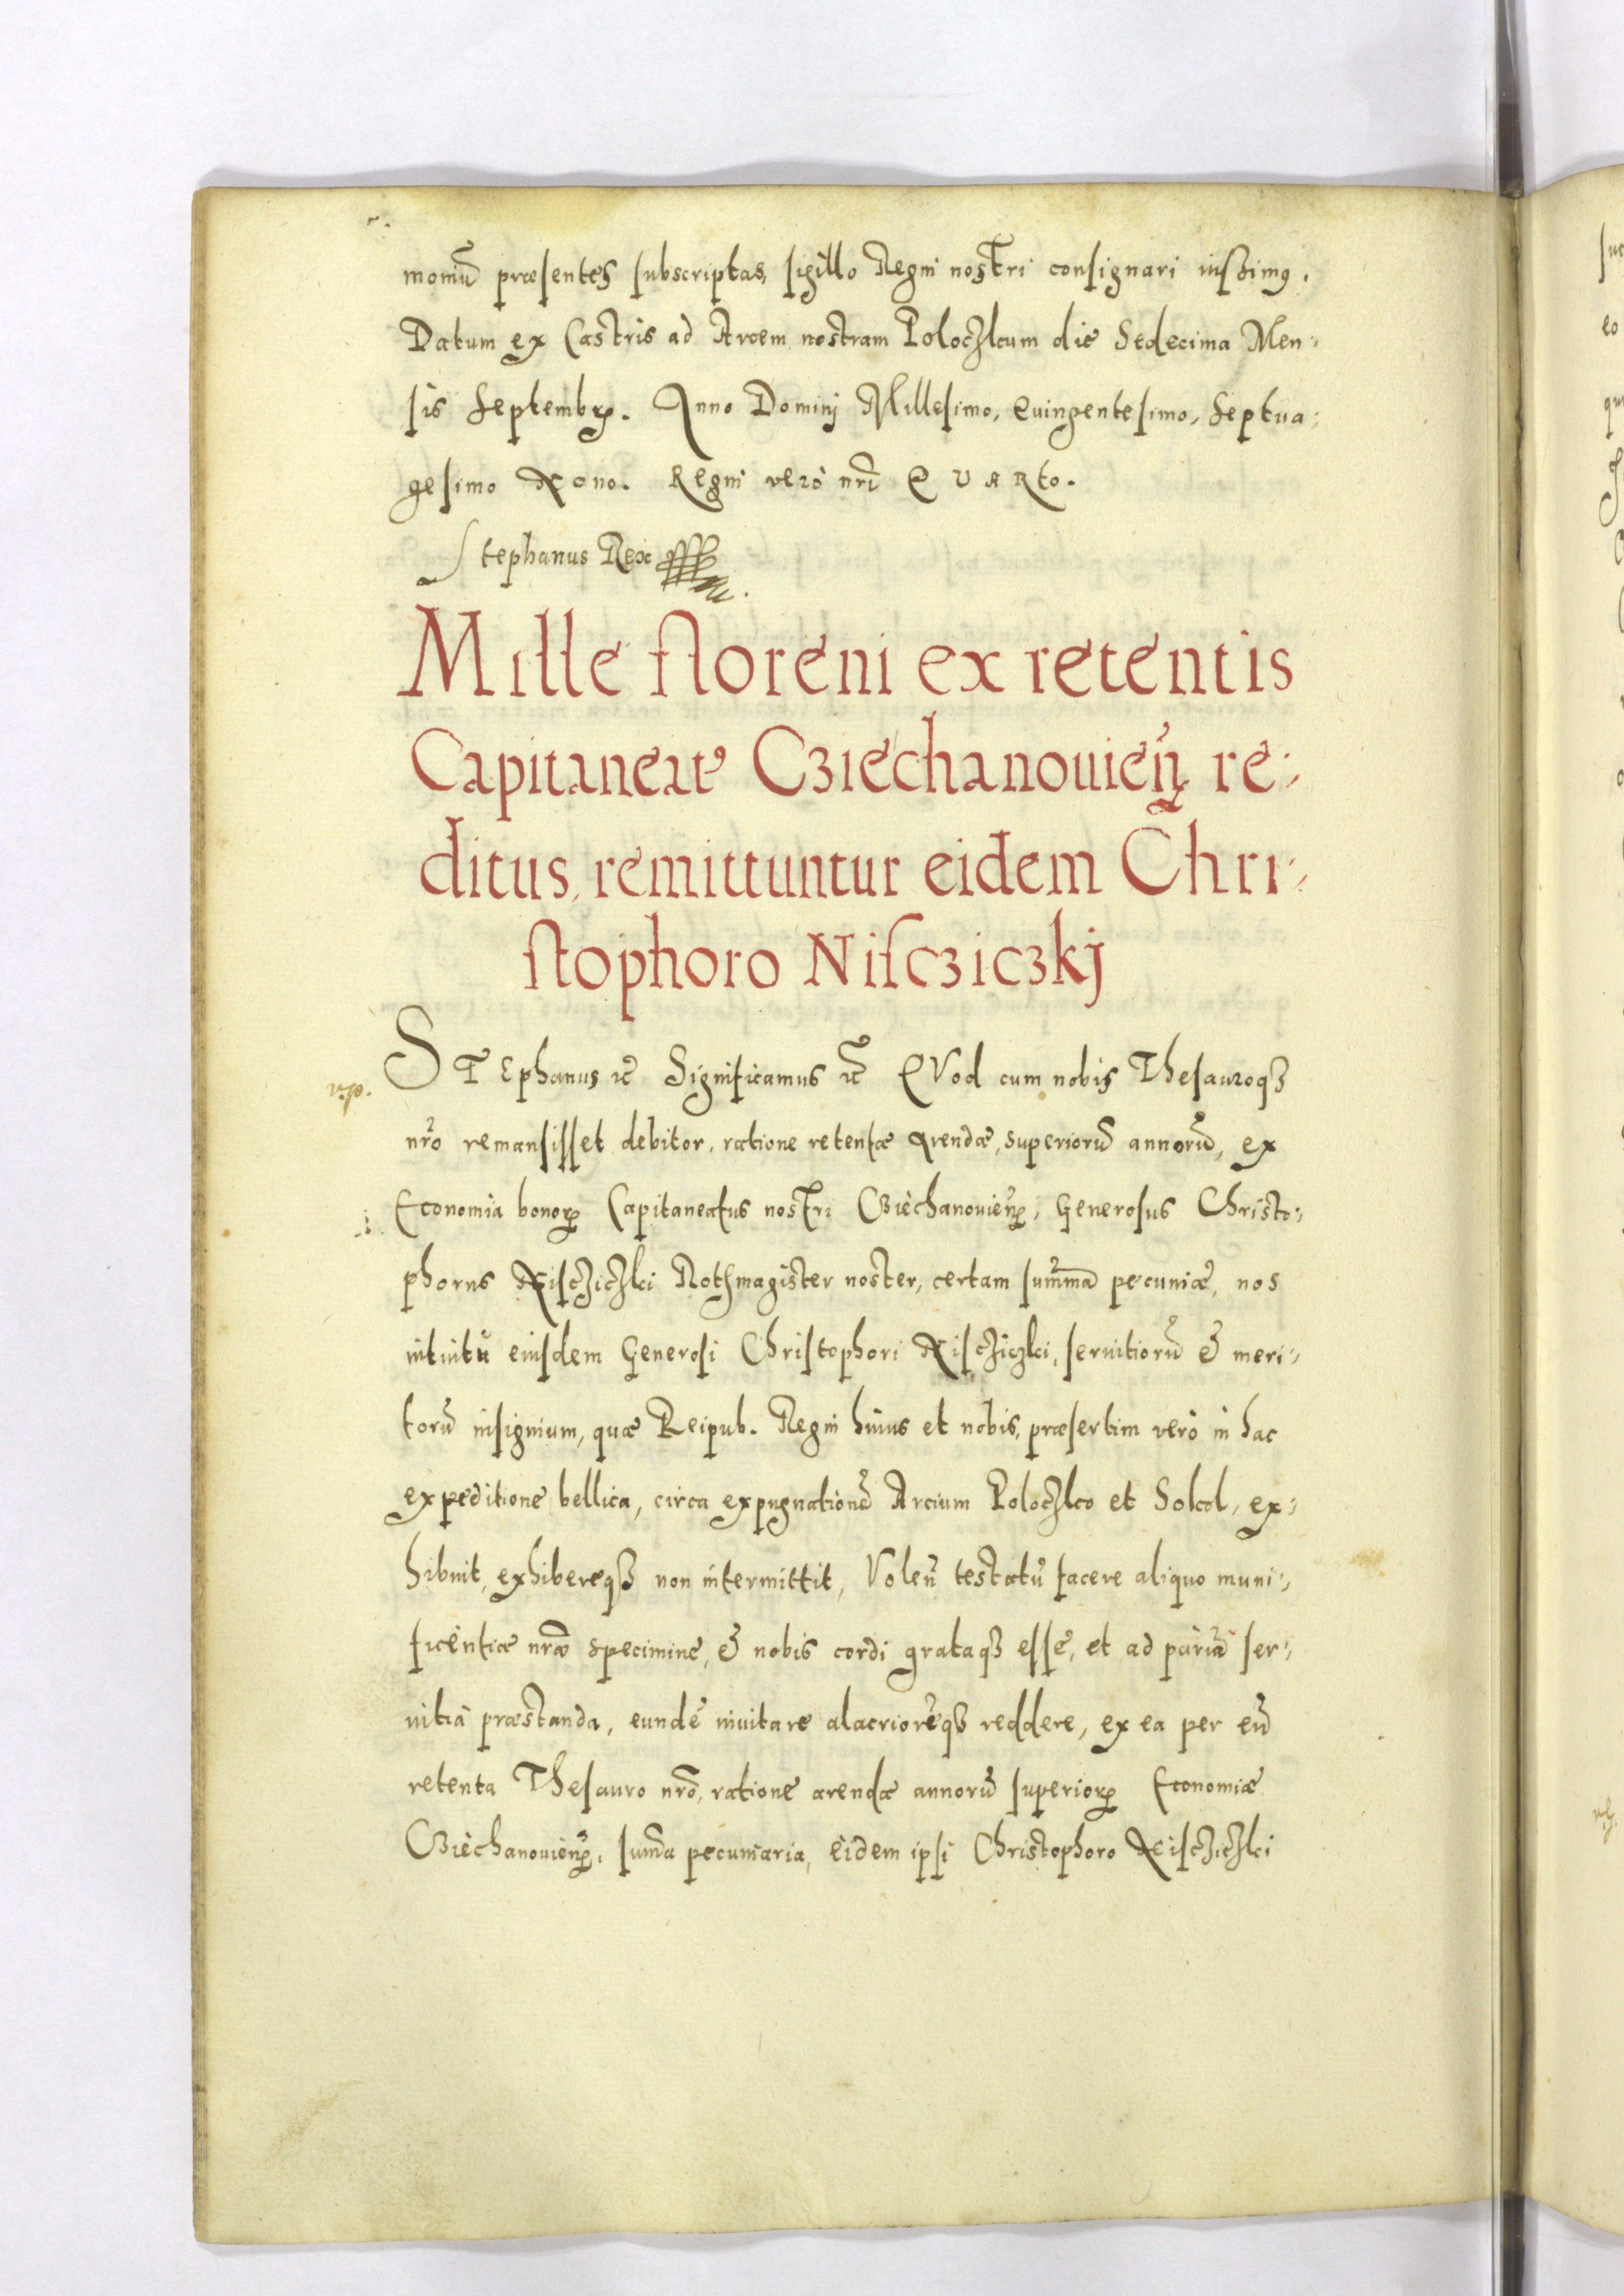 moniũ præsentes subscriptas, sigillo Regni nostri consignari iussimꝰ.
Datum ex Castris ad Arcem nostram Poloczkum die Sedecima Men-
sis Septembrꝭ. Anno Dominj Millesimo, Quingentesimo, Septua-
gesimo Nono. Regni verò nrĩ QUARto.
Stephanus Rex
Mille floreni ex retentis
Capitaneatꝰ Cziechanouieñ re-
ditus, remittuntur eidem Chri-
stophoro Niscziczkj
STEphanus ꝛc̃ Significamus ꝛc̃ QVod cum nobis Thesauroqꝫ
nr̃o remansisset debitor, ratione retentæ arendæ, superiorũ annorũ, ex
Economia bonoꝝ Capitaneatus nostri Cziechanouieñ, Generosus Christo-
phorus Niscziczki Rothmagister noster, certam sum̃mã pecuniæ, nos
intuitu eiusdem Generosi Christophori Nisczickj, seruitiorũ & meri-
torũ insignium, quæ Reipub. Regni huius et nobis, præsertim verò in hac
expeditione bellica, circa expugnationẽ Arcium Poloczko et Sokol, ex-
hibuit, exhibereqꝫ non intermittit, Voleñ testatũ facere aliquo muni-
ficentiæ nrã̃e specimine, & nobis cordi grataqꝫ esse, et ad pariã ser-
uitia præstanda, eundẽ inuitare alacriorẽqꝫ reddere, ex ea per eũ
retenta Thesauro nrõ, ratione arendæ annorũ superioꝝ Economiæ
Cziechanouieñ, sum̃a pecuniaria, eidem ipsi Christophoro Nisczickj